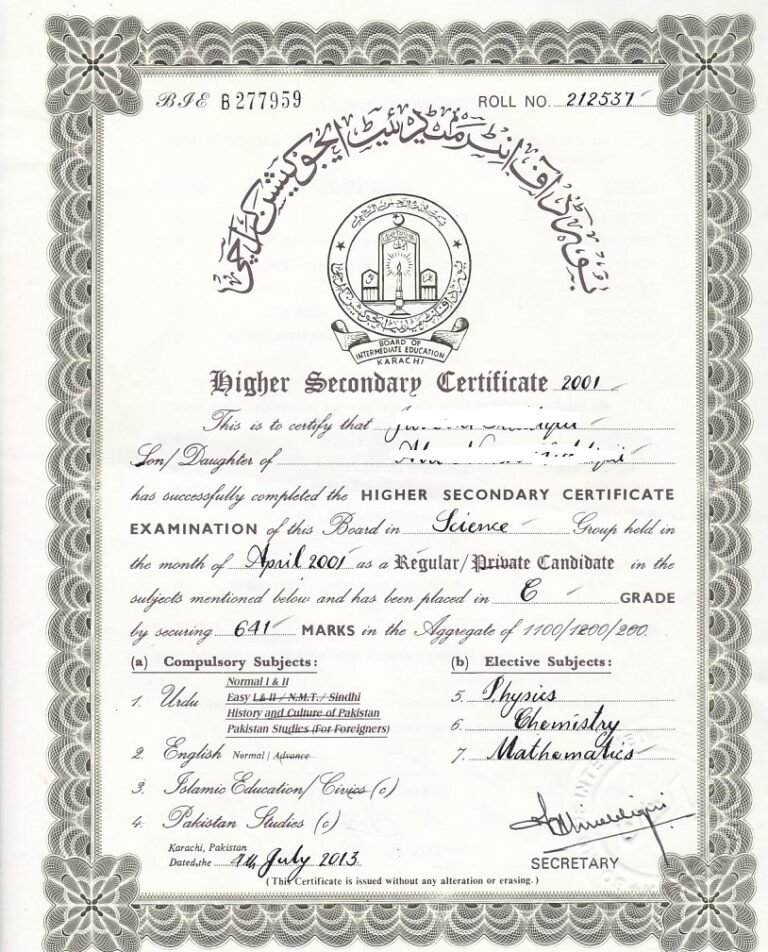 BIE B 277959
ROLL NO. 212537
بورڈ آف انٹرمیڈیٹ ایجوکیشن کراچی
BOARD OF
INTERMEDIATE EDUCATION
KARACHI
Higher Secondary Certificate 2001
This is to certify that
Son/Daughter of
has successfully completed the HIGHER SECONDARY CERTIFICATE
EXAMINATION of this Board in Science Group held in
the month of April 2001 as a Regular/Private Candidate in the
subjects mentioned below and has been placed in C GRADE
by securing 641 MARKS in the Aggregate of 1100/1200/200.
(a) Compulsory Subjects:
1. Urdu Normal I & II
Easy I & II / N.M.T. / Sindhi
History and Culture of Pakistan
Pakistan Studies (For Foreigners)
2. English Normal / Advance
3. Islamic Education/Civics (c)
4. Pakistan Studies (c)
(b) Elective Subjects:
5. Physics
6. Chemistry
7. Mathematics
Karachi, Pakistan
Dated, the July 2013
SECRETARY
(This Certificate is issued without any alteration or erasing.)